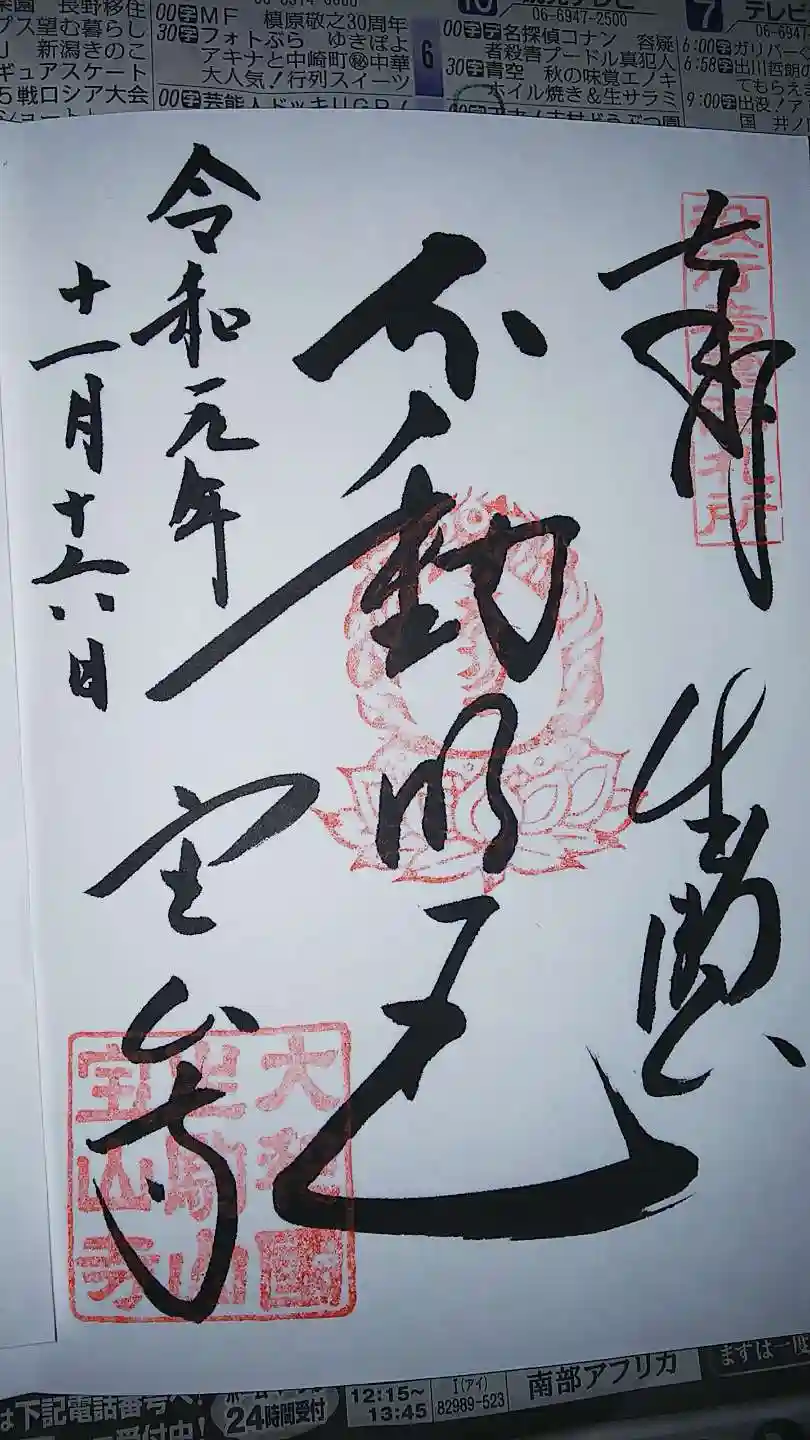 園 長野移住
プス望む暮らし
新潟きのこ
ギュアスケート
5戦ロシア大会
00字MF 槇原敬之30周年
30字フォトぶら ゆきぽよ
アキナと中崎町㊙中華
大人気!行列スイーツ
00字芸能人ドッキリGP
6
06-6947-2500
00字デ名探偵コナン 容疑
者殺害プードル真犯人
30字青空 秋の味覚エノキ
ホイル焼き&生サラミ
7 テレビ
06-6947
6:00字ガリバーの
6:58字出川哲朗の
てもらえま
9:00字出没!ア
国 井ノ
奉拝
役行者霊蹟札所
生駒山
不動明王
令和元年
十一月十六日
宝山寺
大和國
生駒山
宝山寺
は下記電話番号へ!
受付中!
24時間受付
12:15~
13:45
I(アイ)
82989-523
南部アフリカ
まずは一度